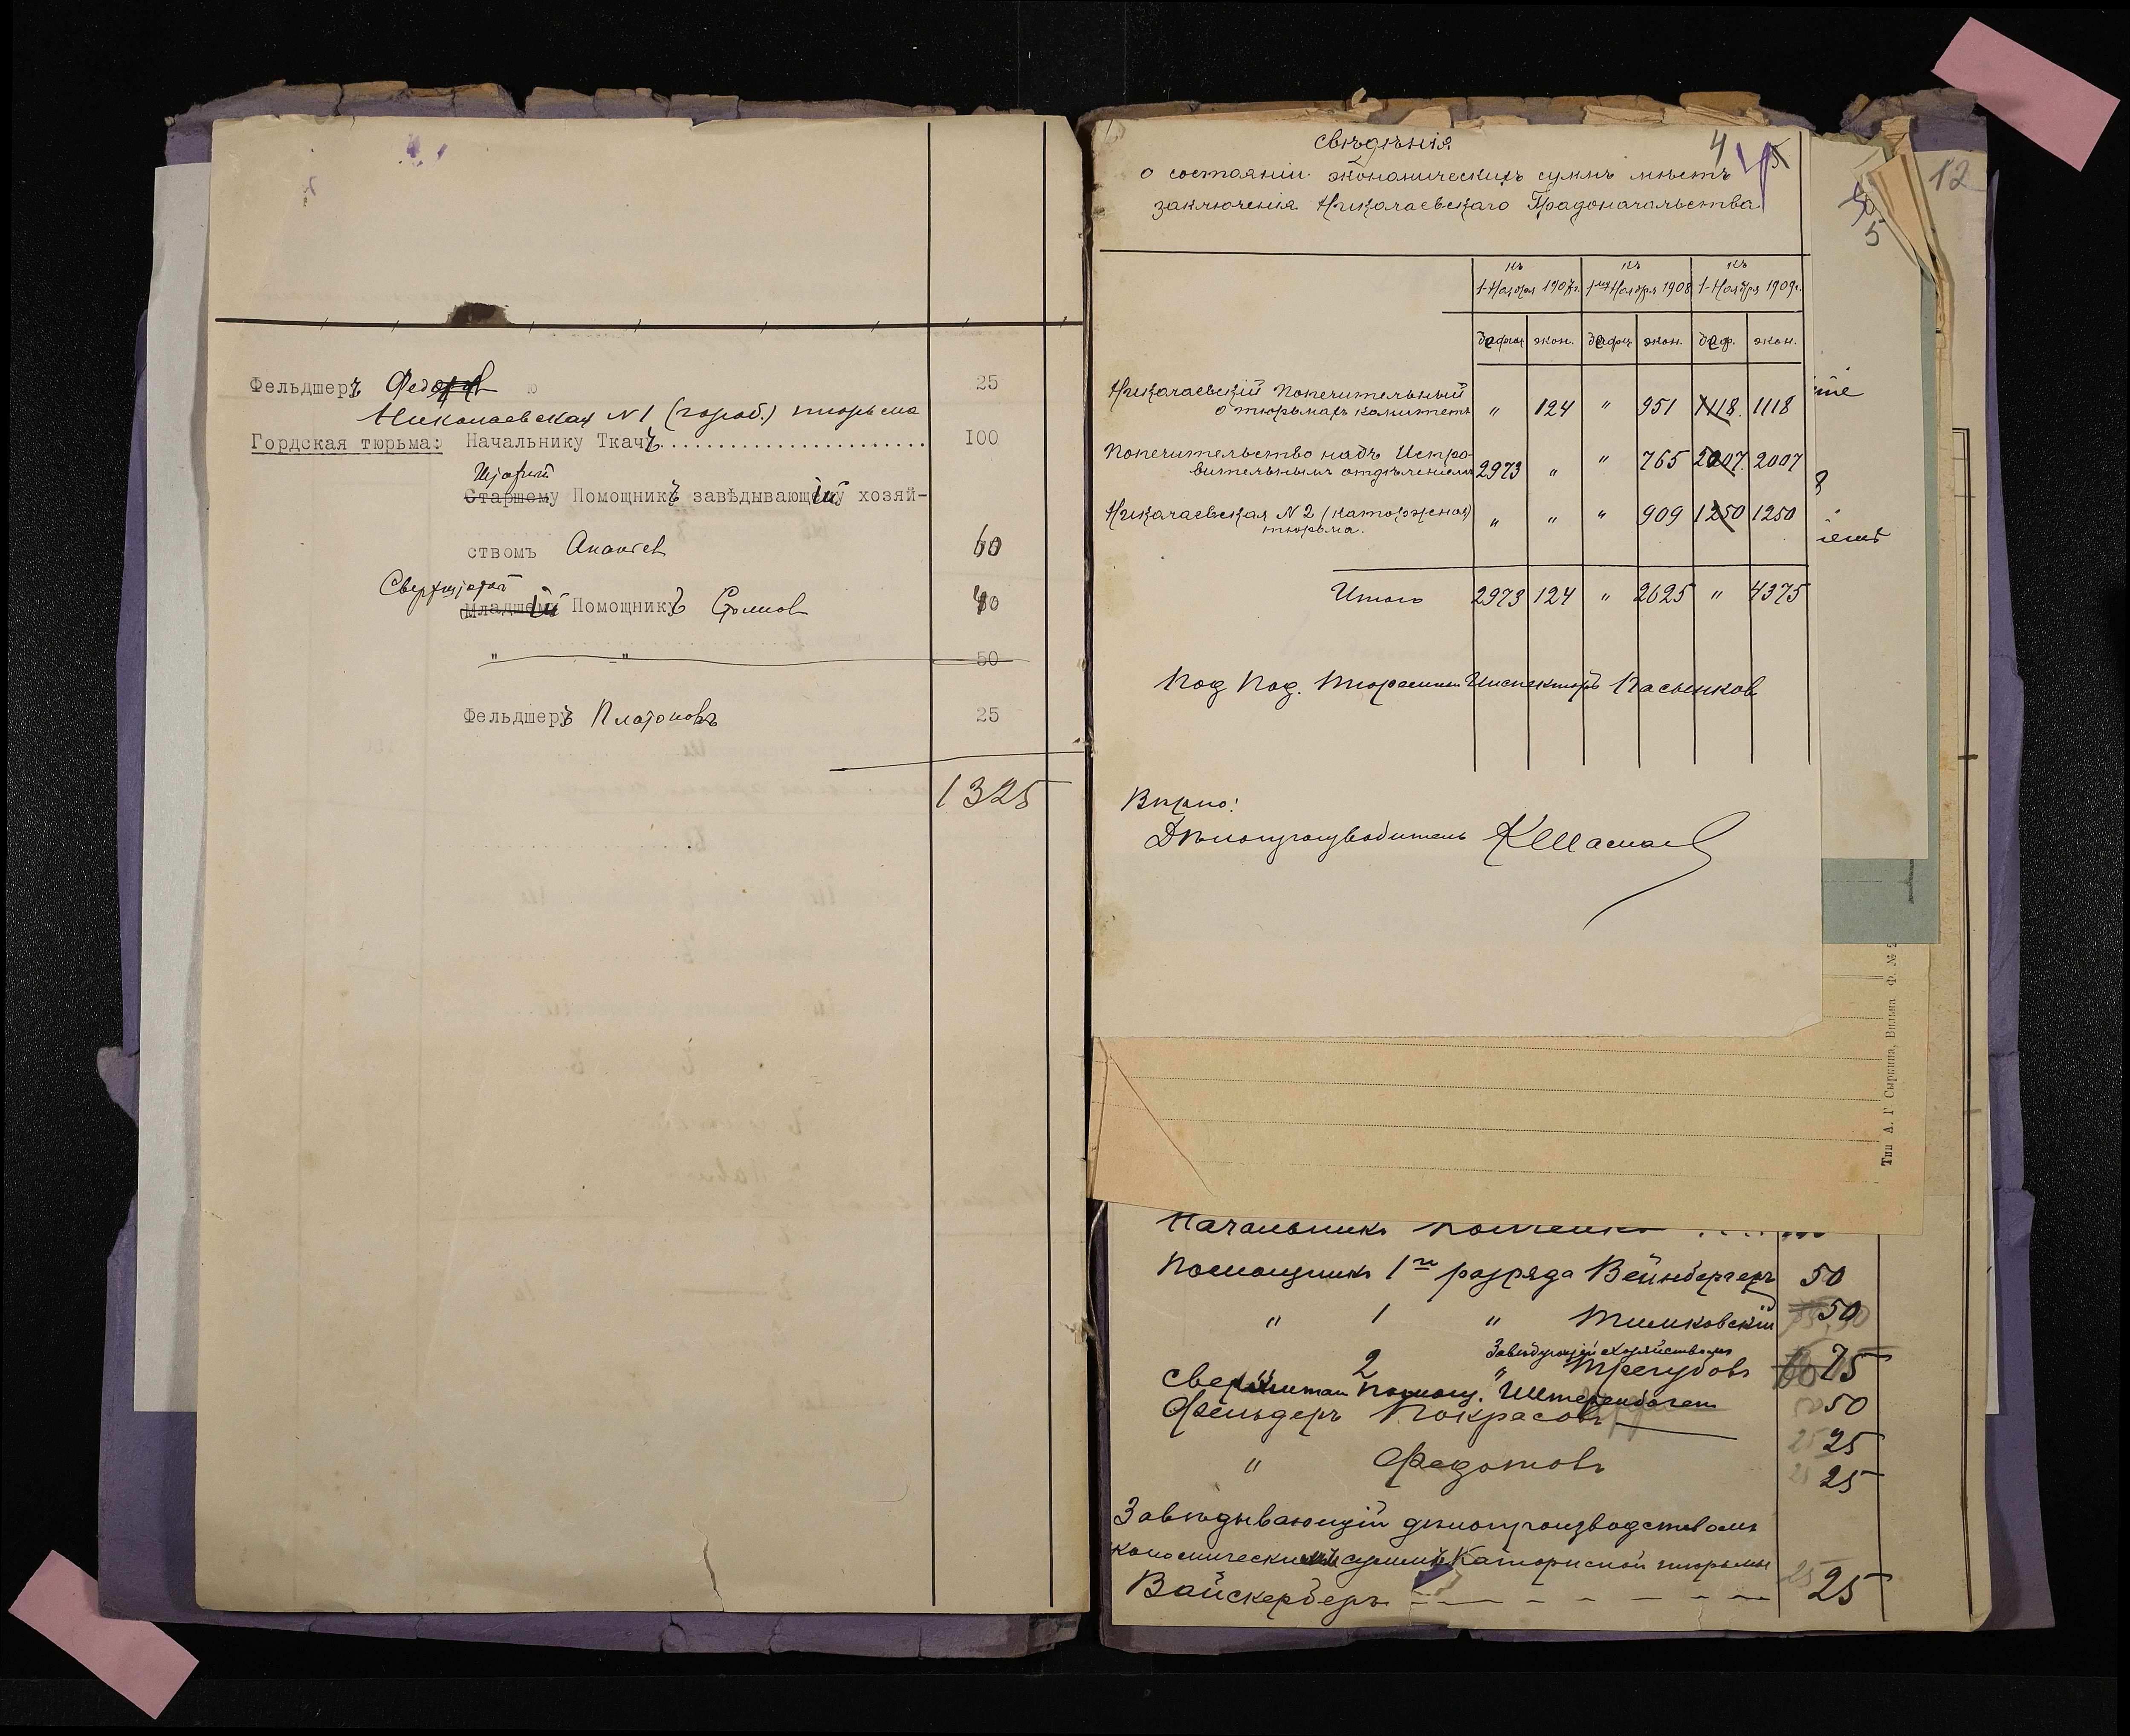 Фельдшеръ 25
Николаевская N1 (город.) тюрьма
Гордская тюрьма: Начальнику Ткачъ....................... 100
Штатный
Старшему Помощникъ завѣдывающій хозяй-
ствомъ Ананьев 60
Сверхштатный
Младшему Помощникъ 40
" " 50
Фельдшеръ Платоновъ 25
1325
4
Свѣдѣнія
о состояніи экономическихъ суммъ мѣстъ
заключенія Николаевскаго Градоначальства
къ къ къ
1 Ноября 1907г. 1го Ноября 1908 1 Ноября 1909г.
дефиц экон. дефиц экон. деф. экон.
Николаевскій Попечительный
о тюрьмахъ комитетъ " 124 " 951 1118. 1118
Попечительство надъ Испра-
вительнымъ отдѣленіемъ 2973 " " 765 2007. 2007
Николаевская N2 (каторжная)
тюрьма. " " " 909 1250 1250
Итого 2973 124 " 2625 " 4375
Под Под. Тюремный Инспекторъ Пасынков
Вѣрно:
Дѣлопроизводитель
12
5
Тип. А. Г. Сыркина, Вильна. Ф. №
Начальникъ
Помощникъ 1го разряда Вейнбергеръ 50
" 1 " Тимковскій 50
Завѣдующій хозяйствомъ
" 2 " Трегубовъ 75
Сверхштат Помощ. Штеренбоген 50
Фельдшеръ Покрасовъ 25
" Федотовъ 25
Завѣдывающій дѣлопроизводствомъ
экономическимъ суммъ Каторжной тюрьмы
Вайскерберъ 25